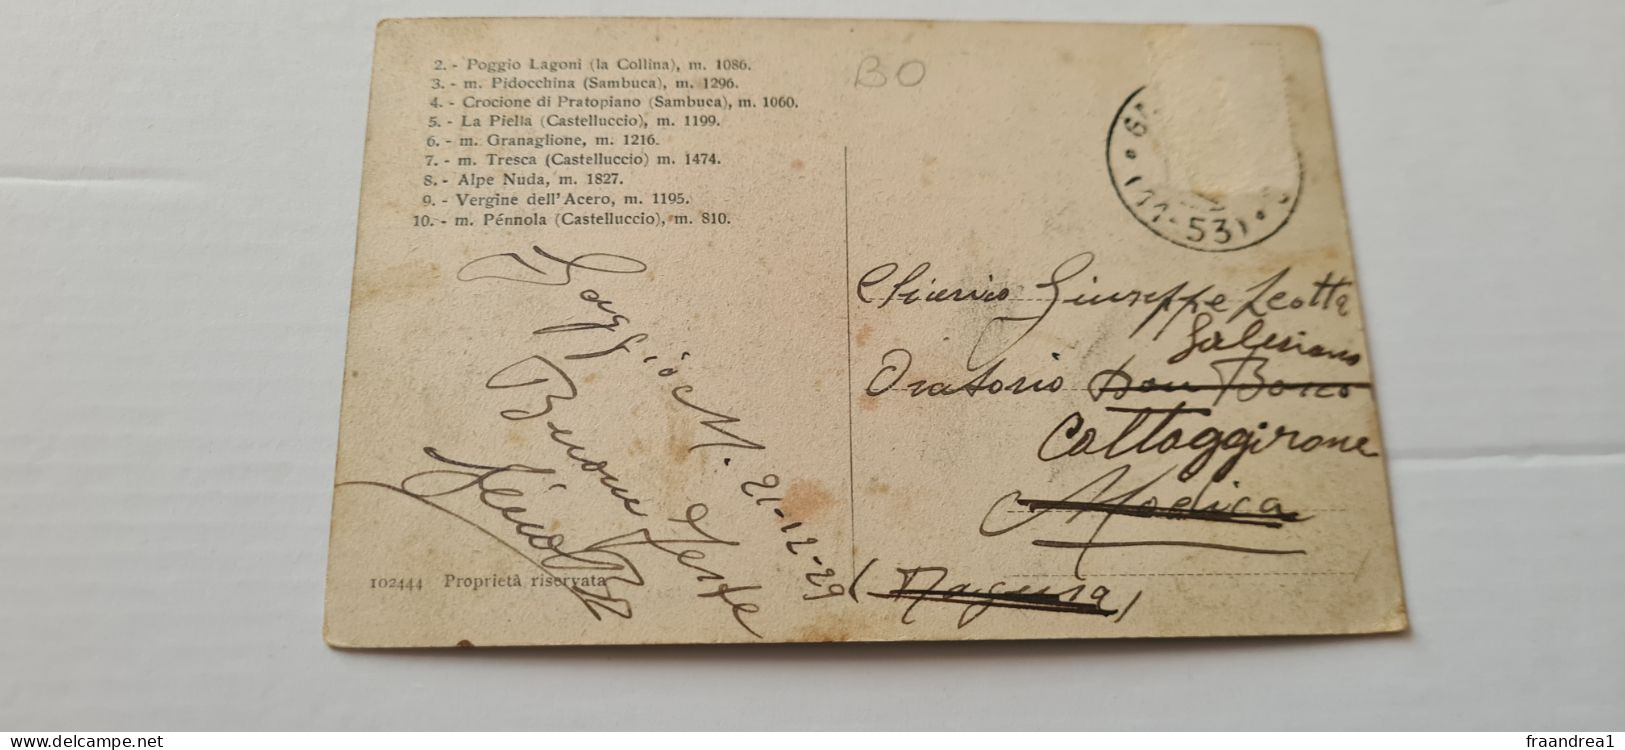 2. - Poggio Lagoni (la Collina), m. 1086.
3. - m. Pidocchina (Sambuca), m. 1296.
4. - Crocione di Pratopiano (Sambuca), m. 1060.
5. - La Piella (Castelluccio), m. 1199.
6. - m. Granaglione, m. 1216.
7. - m. Tresca (Castelluccio) m. 1474.
8. - Alpe Nuda, m. 1827.
9. - Vergine dell'Acero, m. 1195.
10. - m. Pénnola (Castelluccio), m. 810.
BO
(11-53)
Gaggio M. 21-12-29
Buone Feste
102444 Proprietà riservata
Chierico Giuseppe Leotta
Salesiano
Oratorio Don Bosco
Caltaggirone
Modica
(Ragusa)
delcampe.net
fraandrea1